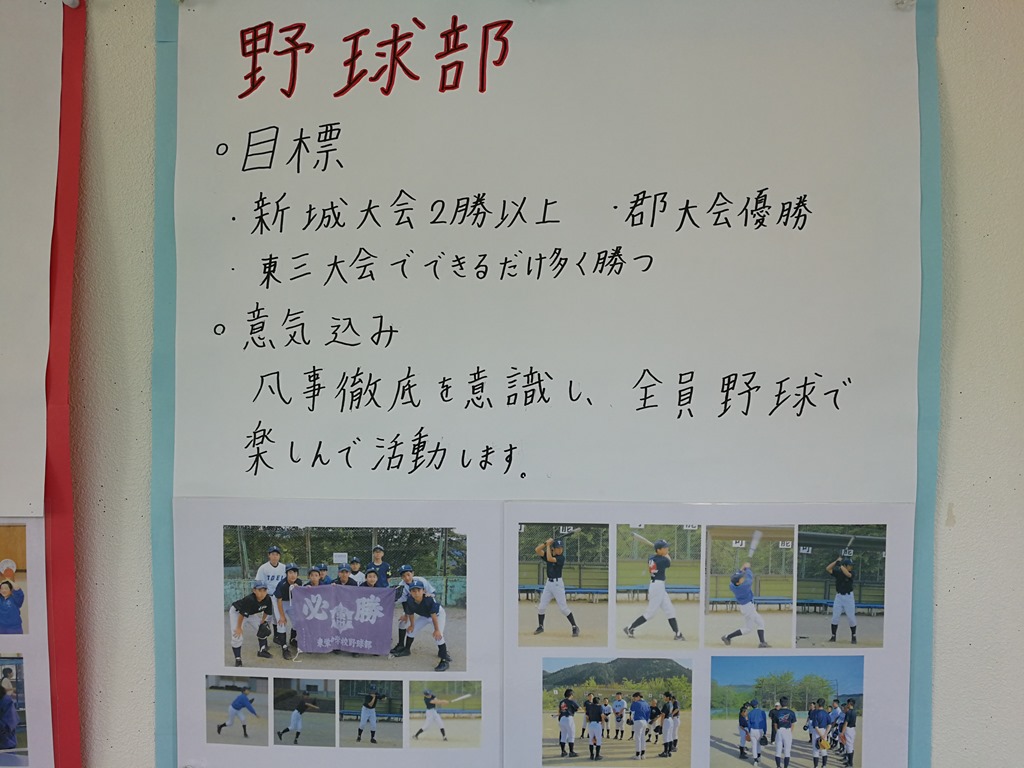 野球部
○目標
・新城大会2勝以上 ・郡大会優勝
・東三大会でできるだけ多く勝つ
○意気込み
凡事徹底を意識し、全員野球で
楽しんで活動します。
必勝